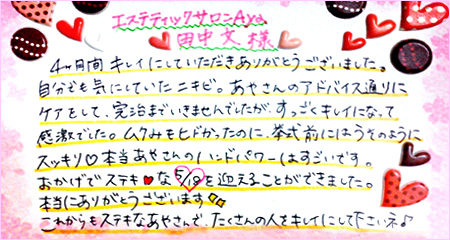 エステティックサロンAya
田中文様
4ヶ月間キレイにしていただきありがとうございました。
自分でも気にしていたニキビ。あやさんのアドバイス通りに
ケアをして、完治まではいきませんでしたが、すっごくキレイになって
感激でした。ムクみもヒドかったのに、挙式前にはうそのように
スッキリ♡本当あやさんのハンドパワーはすごいです。
おかげでステキ♥な5/18を迎えることができました。
本当にありがとうございます
これからもステキなあやさんで、たくさんの人をキレイにして下さいネ♪